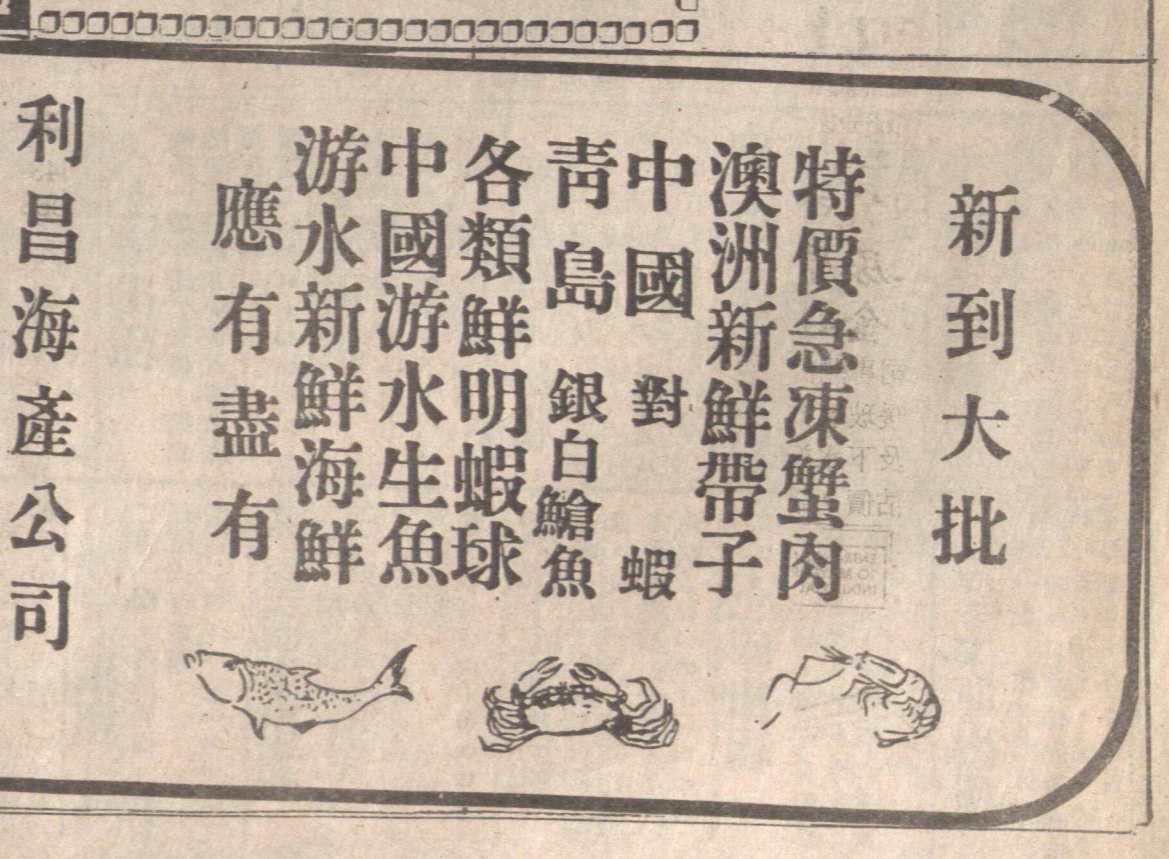 新到大批
特價急凍蟹肉
澳洲新鮮帶子
中國對蝦
靑島銀白鱠魚
各類鮮明蝦球
中國游水生魚
游水新鮮海鮮
應有盡有
利昌海產公司